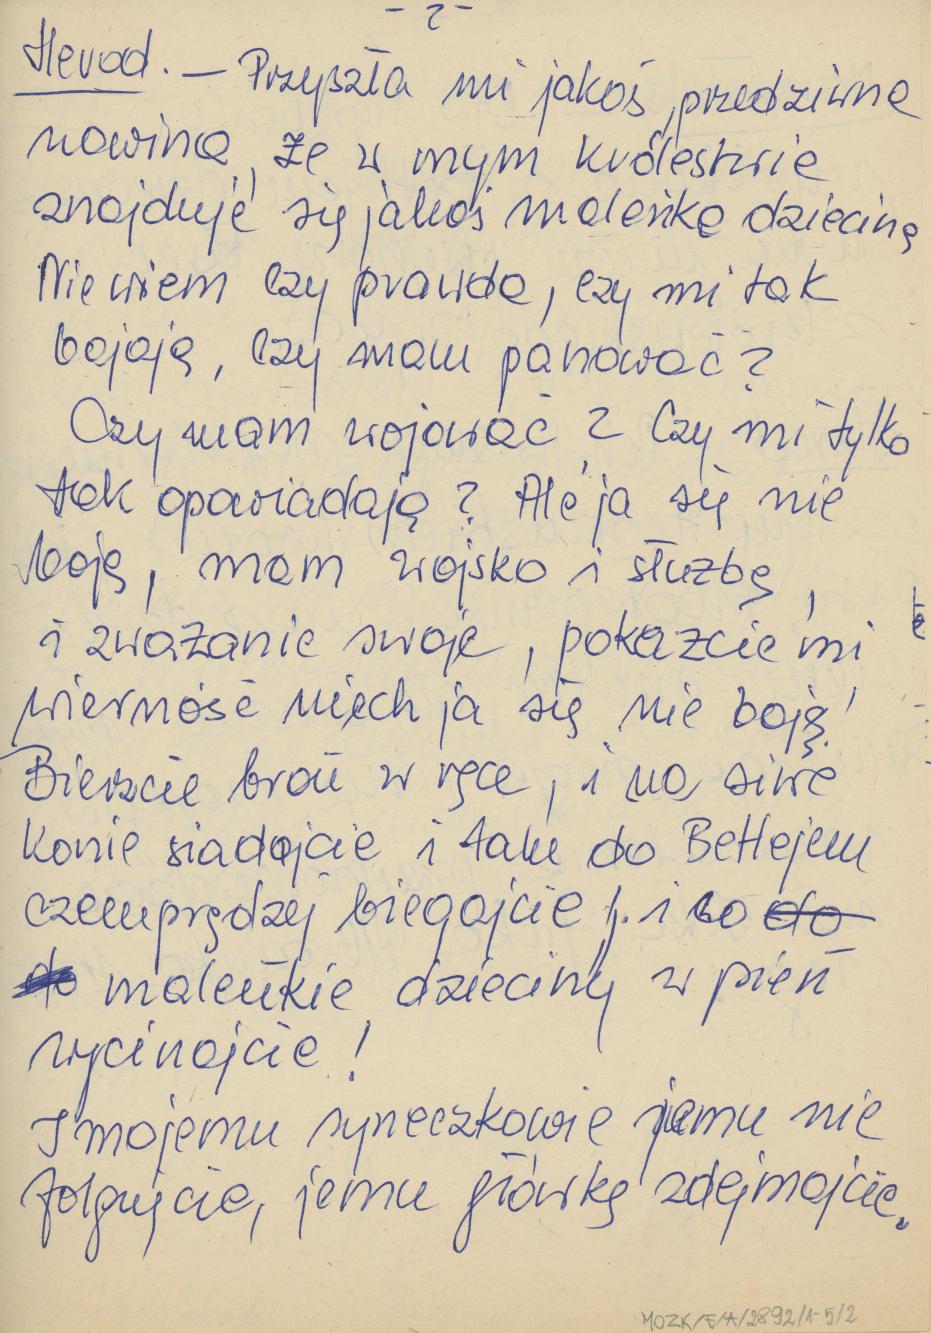 - 2 -
Herod. — Przyszła mi jakoś, przedziwna
nowina, że w mym królestwie
znajduje się jakoś maleńka dziecina
Nie wiem czy prawda, czy mi tak
bajają, czy mam panować?
Czy mam wojować? Czy mi tylko
tak opowiadają? Ale ja się nie
boję, mam wojsko i służbę,
i zważanie swoje, pokażcie mi
wierność niech ja się nie boję!
Bierzcie broń w ręce, i na siwe
konie siadajcie i tam do Betlejem
czemprędzej biegajcie! i co do
do maleńkie dzieciny w pień
wycinajcie!
I mojemu syneczkowie jemu nie
folgujcie, jemu główkę zdejmajcie.
MOZK/E/A/2892/1-5/2